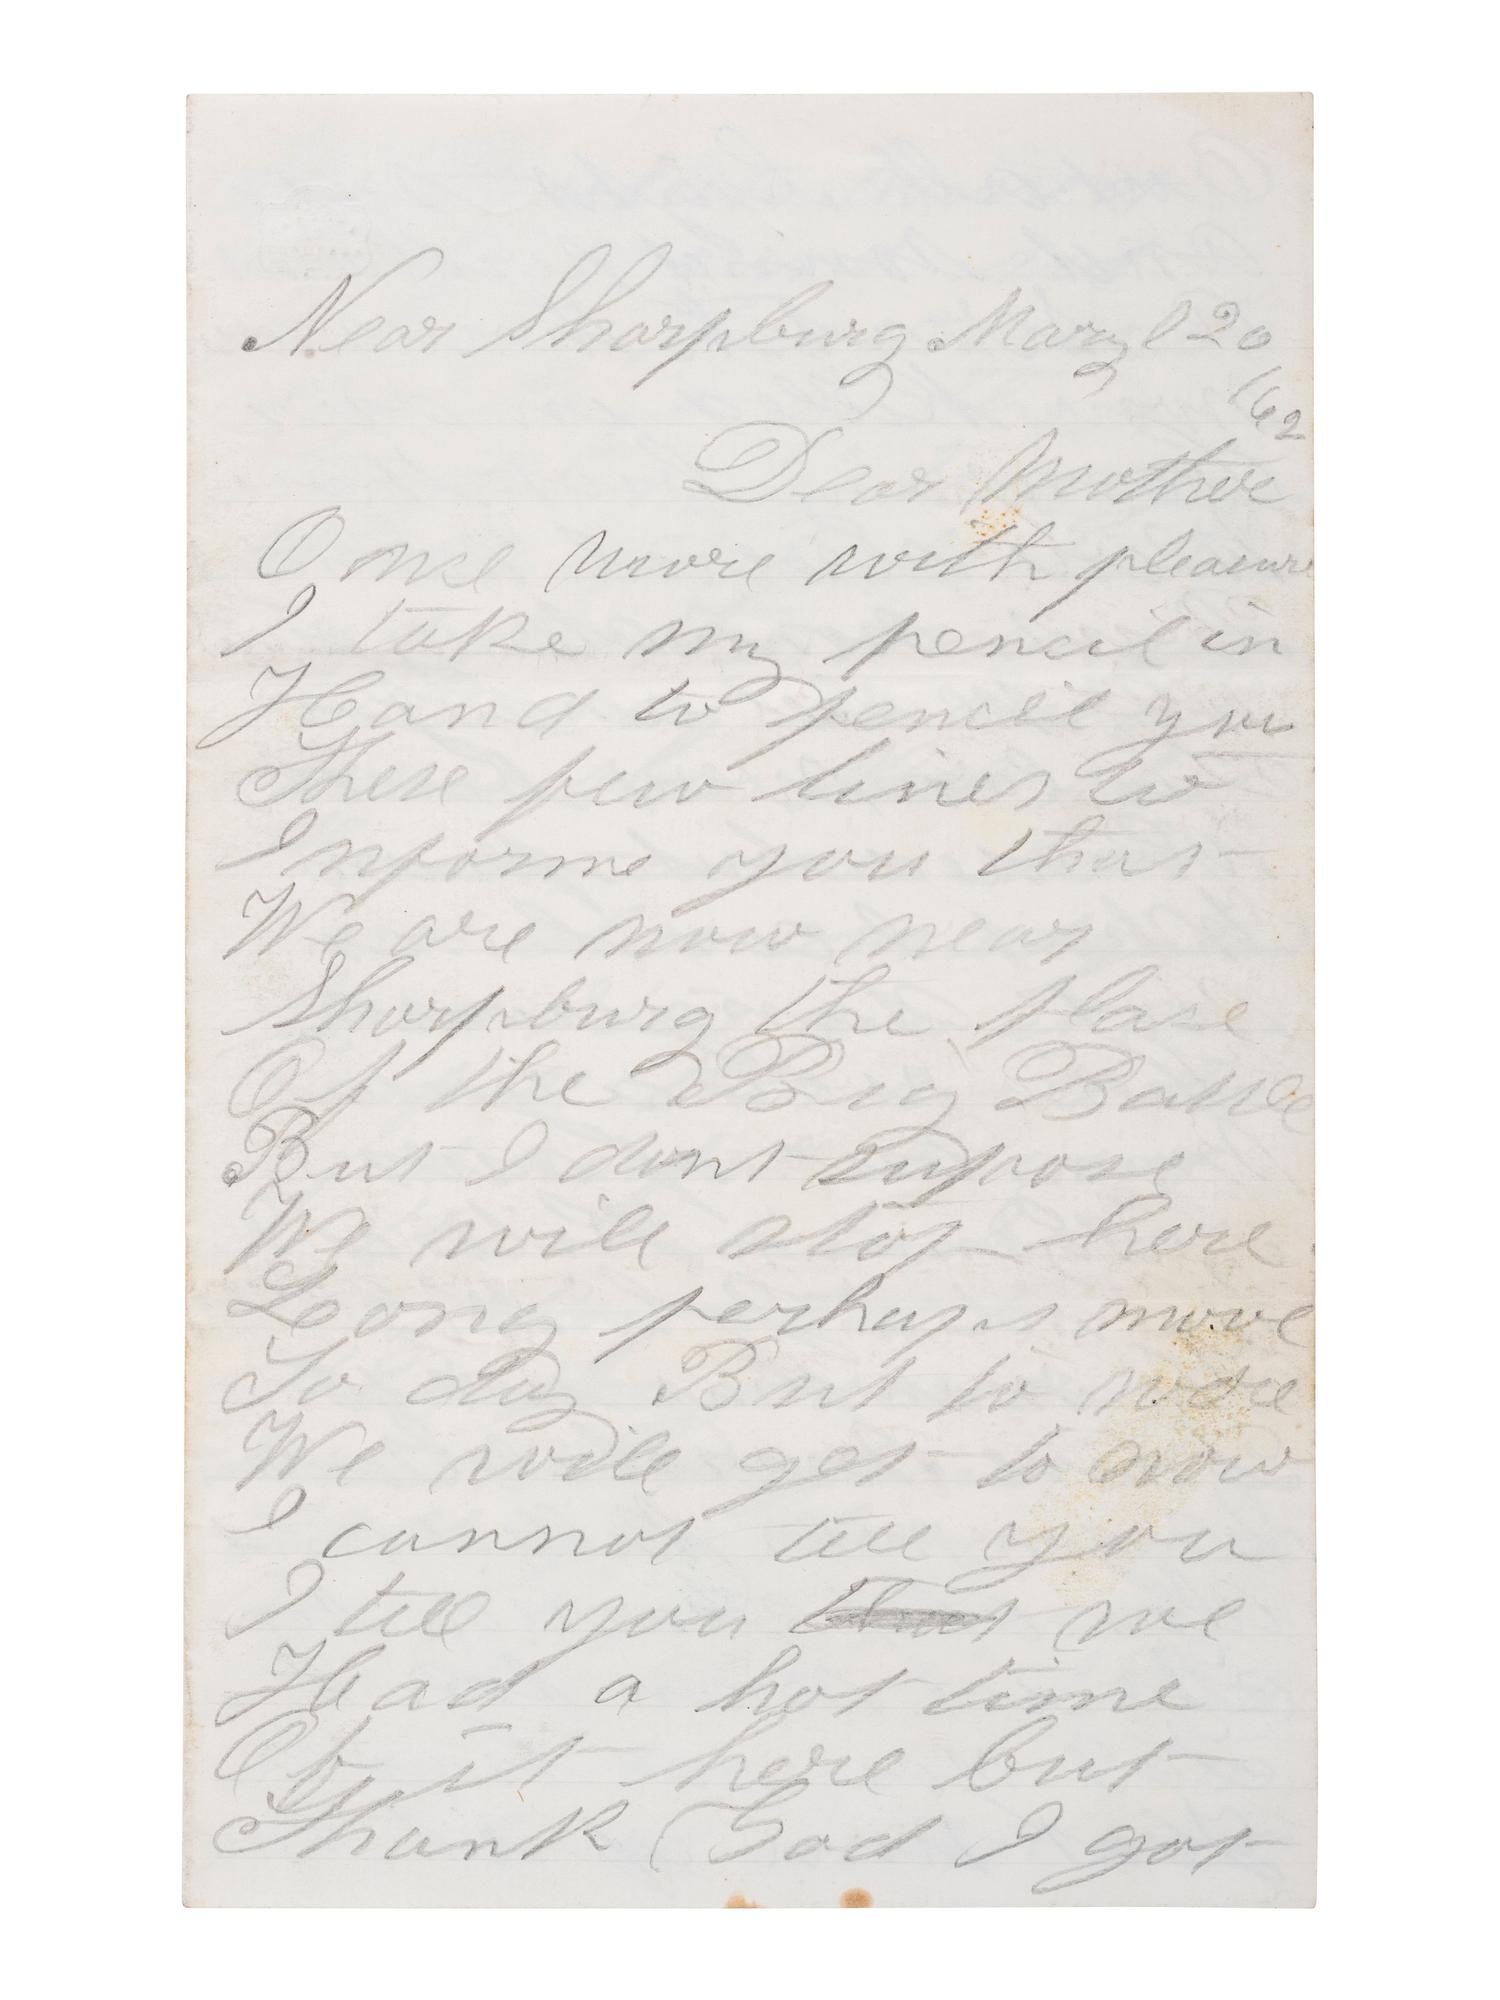 Near Sharpburg Maryl 20
/62
Dear Mother
Once more with pleasure
I take my pencil in
Hand to pencil you
These few lines to
Informe you that
We are now near
Sharpburg the plase
Of the Big Battle
But I dont supose
We will stop here
Long perhaps move
To day But to were
We will get to now
I cannot tell you
I tell you that we
Had a hot time
Of it here but
Thank God I got